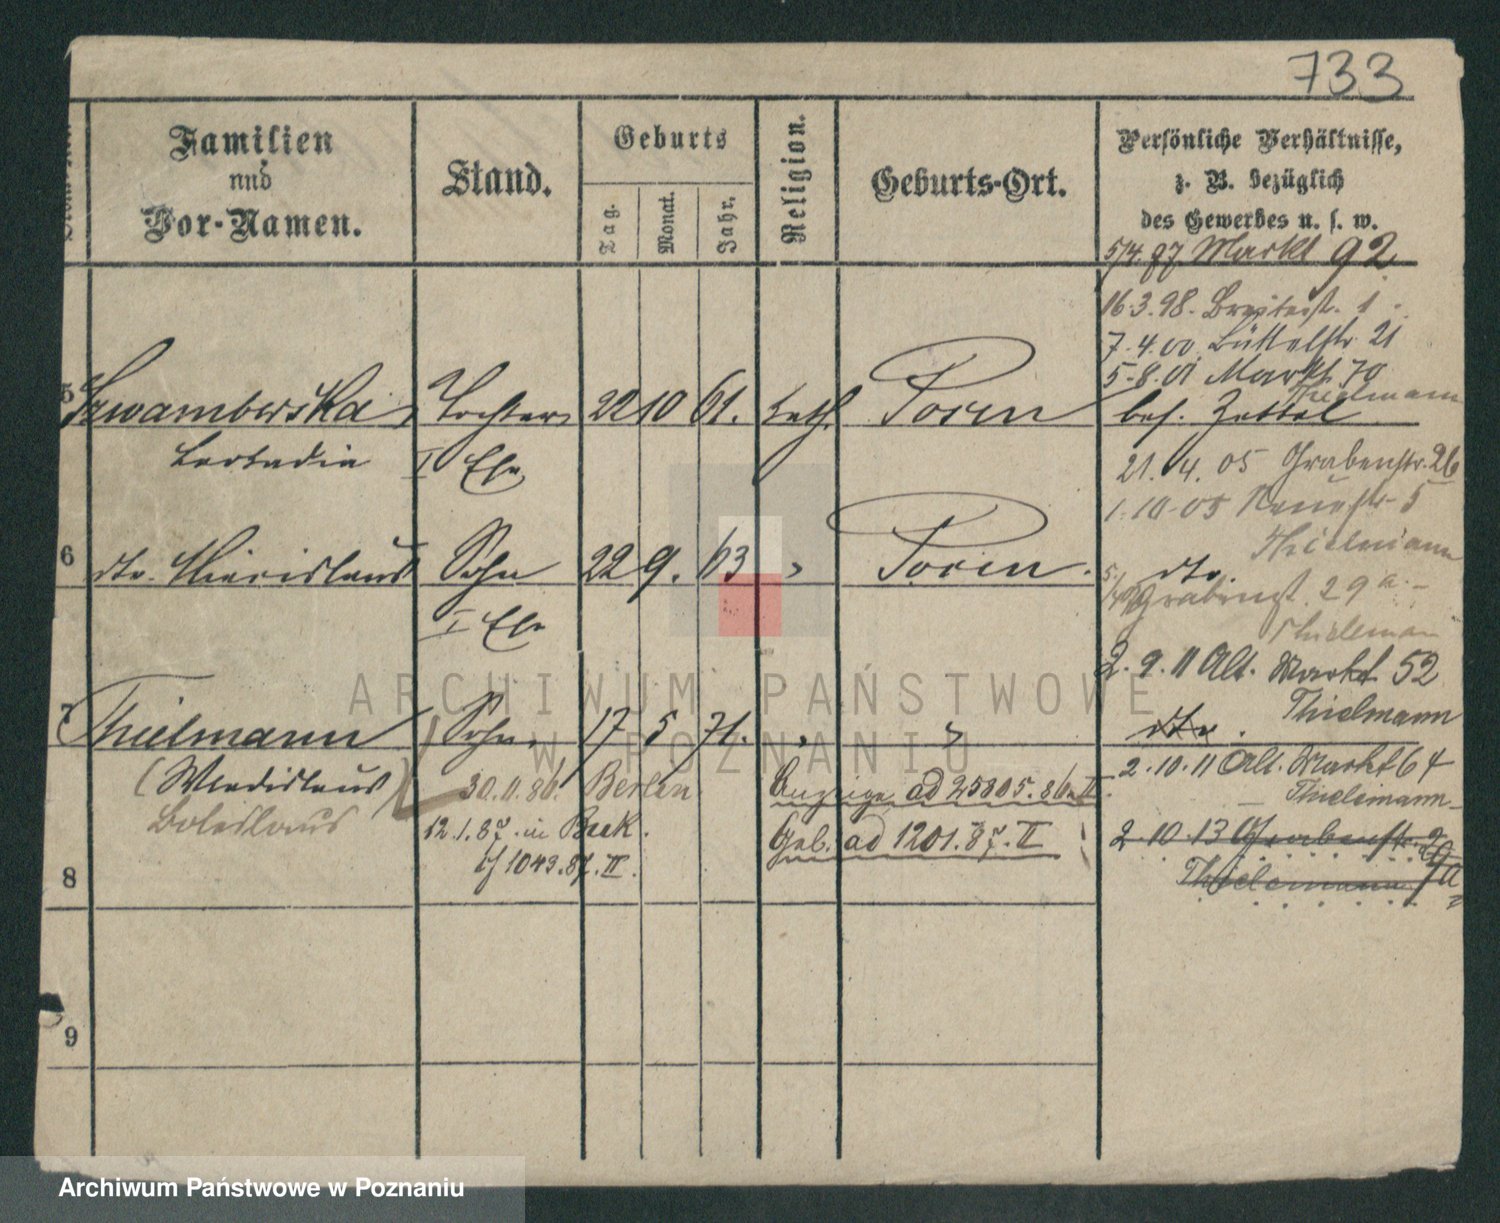 733
Familien
und
Vor-Namen.
Stand.
Geburts
Tag.
Monat.
Jahr.
Religion.
Geburts-Ort.
Persönliche Verhältnisse,
z. B. bezüglich
des Gewerbes u. s. w.
5/4. 97 Markt 92
16.3.98. Breitestr. 1
7.4.00 Büttelstr. 21
5.8.01 Markt 70
Thielmann
5 Szwamberska, Tochter 22 10 61. kath. Posen bes. Zettel
Leokadia I Ehe
21.4.05 Grabenstr. 26
1.10.05 Neuestr. 5
Thielmann
6 dto. Miecislaus Sohn 22 9. 63 " Posen. dto.
I Ehe
Grabenst. 29a.
Thieleman
2.9.11 Alt. Markt 52
Thielmann
7 Thielmann Sohn, 17 5 71. " " dto.
(Wladislaus)
Boleslaus
30.11.86. Berlin
Anzeige ad 25805.86. II.
12.1.87. in Beek.
Geb. ad 1201.87. II
cf 1043.87. II.
2.10.11 Alt. Markt 64
Thielemann
2.10.13 Grabenstr. 29a
Thielemann
8
9
ARCHIWUM PAŃSTWOWE
W POZNANIU
Archiwum Państwowe w Poznaniu